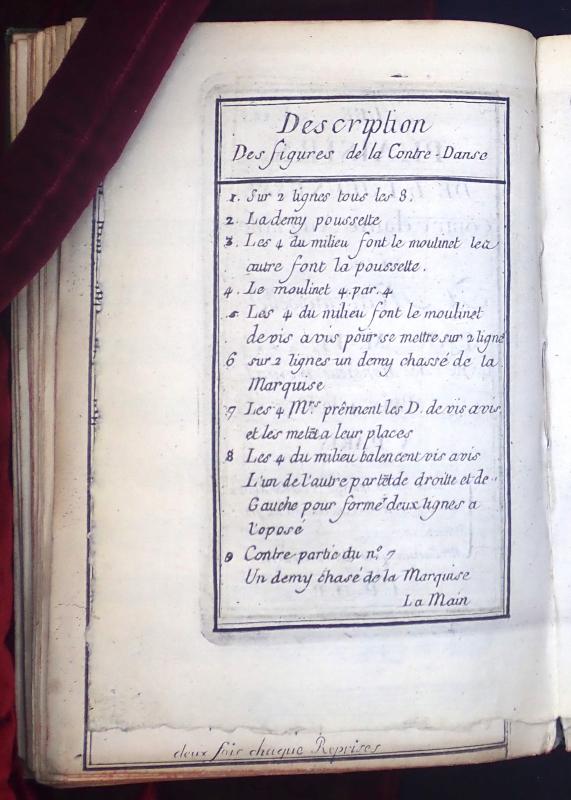 Description
Des figures de la Contre-Danse
1. Sur 2 lignes tous les 8.
2. La demy poussette
3. Les 4 du milieu font le moulinet les
autre font la poussette.
4. Le moulinet 4. par. 4
5. Les 4 du milieu font le moulinet
de vis a vis pour se mettre sur 2 ligne
6 sur 2 lignes un demy chassé de la
Marquise
7 Les 4 Mrs prênnent les D. de vis a vis
et les metēt a leur places
8 Les 4 du milieu balencent vis a vis
L'un de l'autre partēt de droitte et de
Gauche pour former deux lignes a
l'oposé
9 Contre partie du no. 7
Un demy chasé de la Marquise
La Main
deux fois chaque Reprises